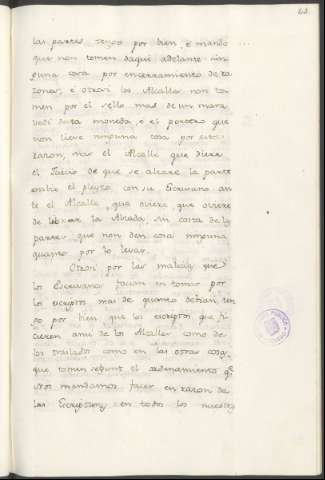 las partes, tengo por bien, e mando
que non tomen daqui adelante nin
guna cosa por encerramiento de ra
zones, e otrosi los Alcalles non to
men por el sello mas de un mara
vedi desta moneda, e el portero que
non lieve ninguna cosa por esta
razon, mas el Alcalle que diere
el Juicio de que se alzare la parte
embie el pleyto con su Escrivano an
te el Alcalle, que oviere
de librar la Alzada, sin costa de las
partes que non den cosa ninguna
quanto por lo levar.
Otrosi por las malicias que
los Escrivanos facian en tomar por
los escriptos mas de quanto debian, ten
go por bien que los escriptos que fi
cieren ansi de los Alcalles como de
los traslados como en las otras cosas,
que tomen segunt el ordenamiento qe
Nos mandamos facer en razon de
las Escripturas en todos los nuestros